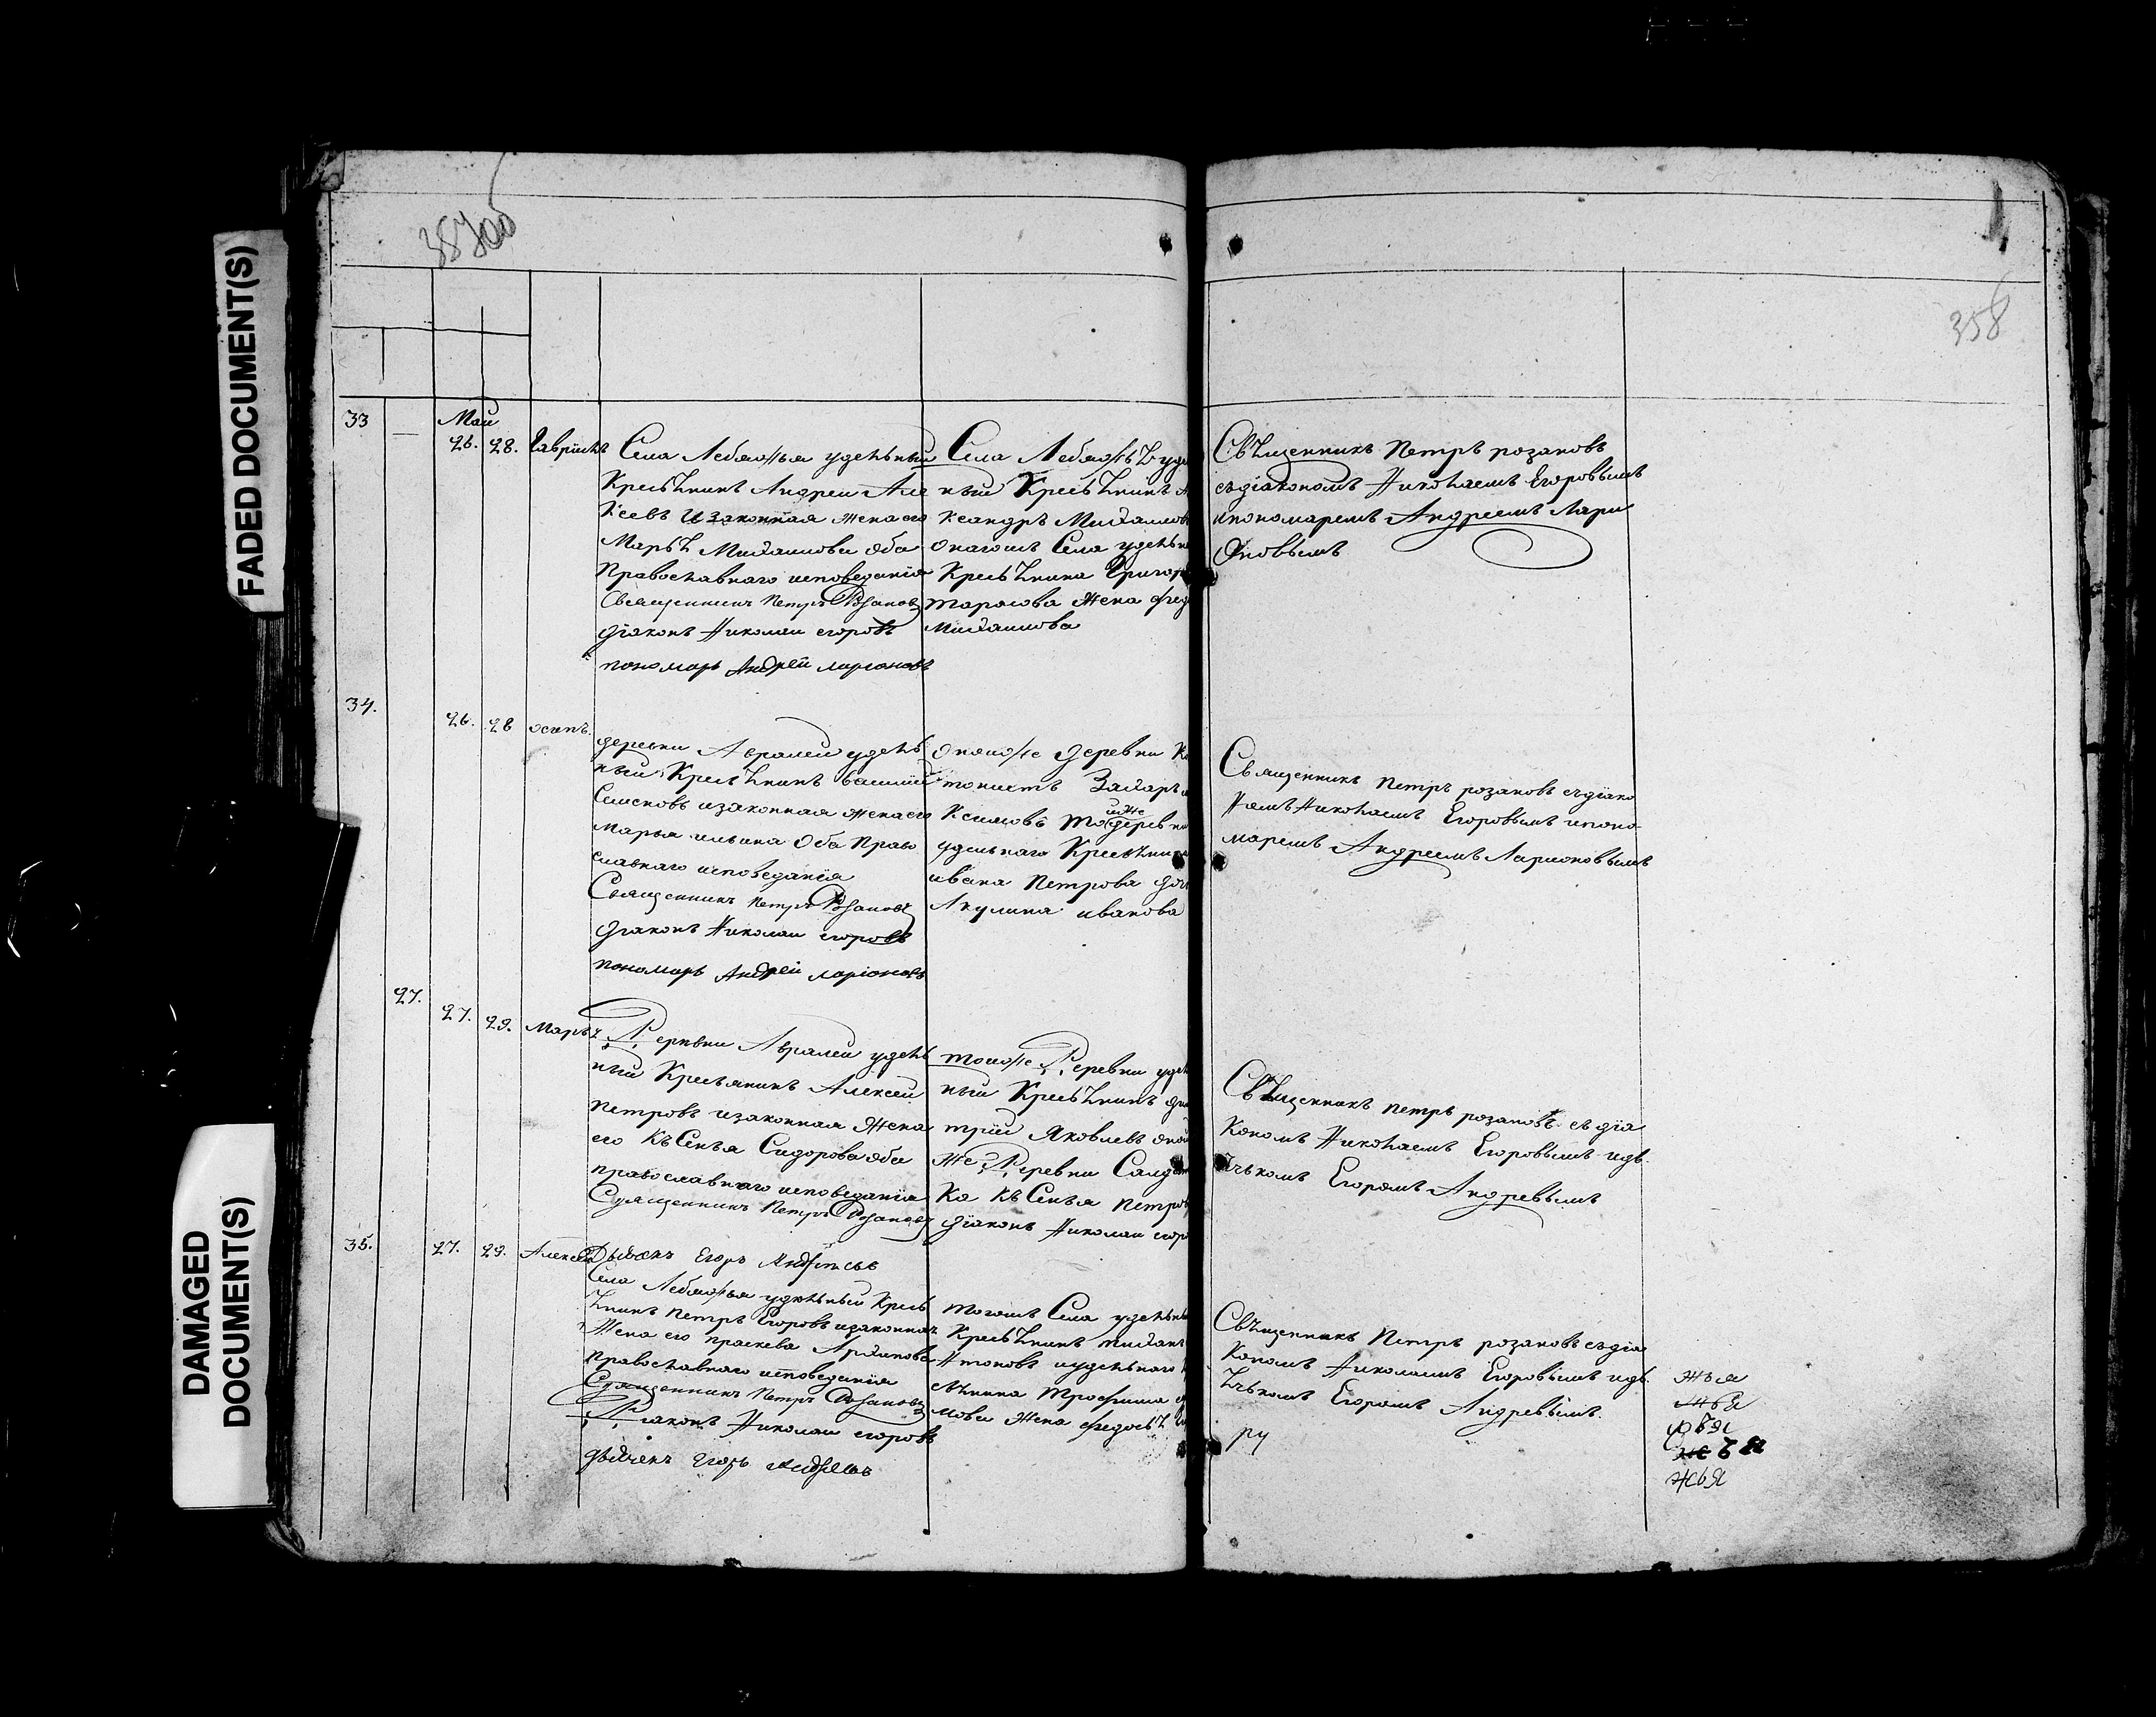 FADED DOCUMENT(S)
DAMAGED
DOCUMENT(S)
358
33
Маи
26. 28. Гаврiилъ
Села Лебяжья удельныи
Крестьѣнинъ Андреи Але
Ксевъ Изаконная жена его
Марьѣ Михаилова оба
Православнаго исповеданiя
Священникъ Петръ Розановъ
дiаконъ Николаи егоровъ
пономарь Андрей ларiоновъ
Села Лебяжьѣ уде
ныи Кресьѣнинъ
Ксандръ Михаилов
Онагожъ Села удельна
Кресьѣнина Григор
тарасова Жена
Михаилова
Свѣщенникъ Петръ розановъ
съдiакономъ Николаемъ Егоровымъ
ипономаремъ Андреемъ Лари
Оновымъ
34.
26. 28 осипъ.
деревни Авралеи удель
ныи Кресьѣнинъ василiй
Семеновъ изаконная жена его
Марья ильина Оба Право
славнаго исповеданiя
Священникъ Петръ Розановъ
дiаконъ Николаи егоровъ
пономарь Андрей ларiоновъ
Оноиже деревни
Захаръ
тоиже деревни
удельнаго Кресьѣнина
ивана Петрова
Акулина иванова
Священникъ Петръ розановъ съдiако
номъ Николаемъ Егоровымъ ипоно-
маремъ Андреемъ Ларионовымъ
27.
27. 29. Марьѣ
Деревни Авралеи удель
ныи Кресьянинъ Алексеи
Петровъ изаконная Жена
его КъСенья Сидорова оба
православнаго исповеданiя
Священникъ Петръ Розановъ
Дьячекъ Егоръ Андреевъ
тоиже Деревни уде
ныи КресьѢнинъ
трiй Яковлевъ оной
же Деревни Салдат
Ка КъСенья Петров
дiаконъ Николаи егор
Свѣщенникъ петръ розановъ съ дiа
Кономъ Николаемъ Егоровымъ идь
ѣчькомъ Егоромъ Андревымъ
35.
27. 29. Алексеи
Села Лебяжья удельныи Кресь
ѣнинъ Петръ Егоровъ изаконная
Жена его праскева Архипова
Православнаго исповеданiя
Священникъ Петръ Розановъ
Дiаконъ Николаи егоровъ
дьячекъ Егоръ Андреевъ
Тогожъ Села удельны
Кресьѣнинъ
Антоновъ иудельнаго
сьѣнина Трофима
мова Жена федосьѣ
Свѣщенникъ Петръ розановъ съдiа
Кономъ Николаемъ Егоровымъ идь
ѣчькомъ Егоромъ Андревымъ.
ру
жья
жья
жья